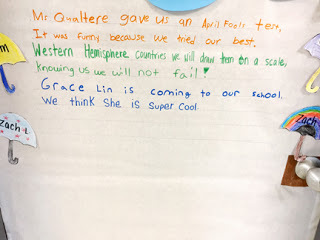 Mr. Qualtere gave us an April Fools test,
It was funny because we tried our best.
Western Hemisphere countries we will draw them on a scale,
knowing us we will not fail!
Grace Lin is coming to our school.
We think She is Super Cool
m
Zach L
Zach